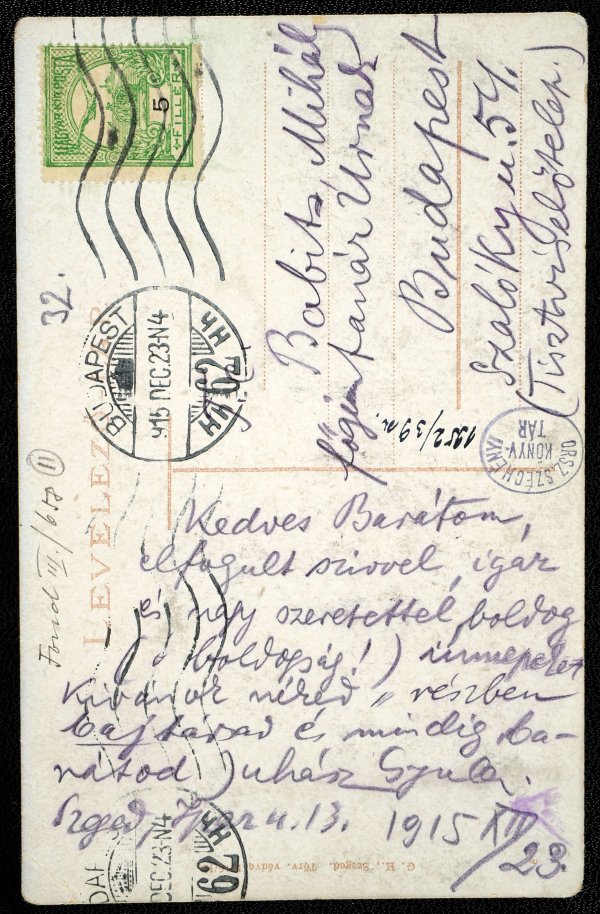 5
FILLÉR
BUDAPEST
915 DEC.23.N4
62
LEVELEZŐ
32.
Fond III/658
11
Babits Mihály
főgim. tanár Úrnak
Budapest
Szalóky u. 54.
(Tisztviselőtelep.)
1252/39 n.
ORSZ. SZÉCHÉNYI
KÖNYV-
TÁR
Kedves Barátom,
elfogult szivvel, igaz
és nagy szeretettel boldog
(ó boldogság!) ünnepeket
kívánok néked
részben
bajtársad és mindig ba-
rátod Juhász Gyula.
Szged, Ipar u. 13. 1915 XII/23.
DEC.23.N4
62
G. H., Szeged. Törv. védve